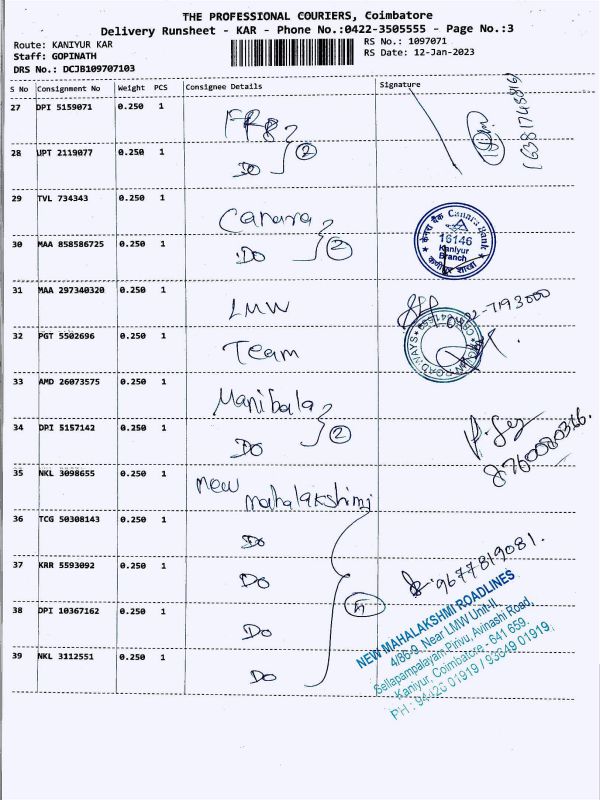 THE PROFESSIONAL COURIERS, Coimbatore
Delivery Runsheet - KAR - Phone No.:0422-3505555 - Page No.:3
Route: KANIYUR KAR
Staff: GOPINATH
DRS No.: DCJB109707103
RS No.: 1097071
RS Date: 12-Jan-2023
S No Consignment No Weight PCS Consignee Details Signature
27 DPI 5159071 0.250 1
28 UPT 2119077 0.250 1 Do 2
29 TVL 734343 0.250 1 Canara
30 MAA 858586725 0.250 1 Do 2
केनरा बैंक Canara Bank
16146
Kaniyur
Branch
31 MAA 297340320 0.250 1 LMW
32 PGT 5502696 0.250 1 Team
33 AMD 26073575 0.250 1 Manibala
34 DPI 5157142 0.250 1 Do 2
35 NKL 3098655 0.250 1 New mahalakshmi
36 TCG 50308143 0.250 1 Do
37 KRR 5593092 0.250 1 Do 5
9677819081.
38 DPI 10367162 0.250 1 Do
39 NKL 3112551 0.250 1 Do
NEW MAHALAKSHMI ROADLINES
4/86-9, Near LMW Unit-II,
Sellapampalayam Pirivu, Avinashi Road,
Kaniyur, Coimbatore - 641 659.
PH : 94426 01919 / 93649 01919,